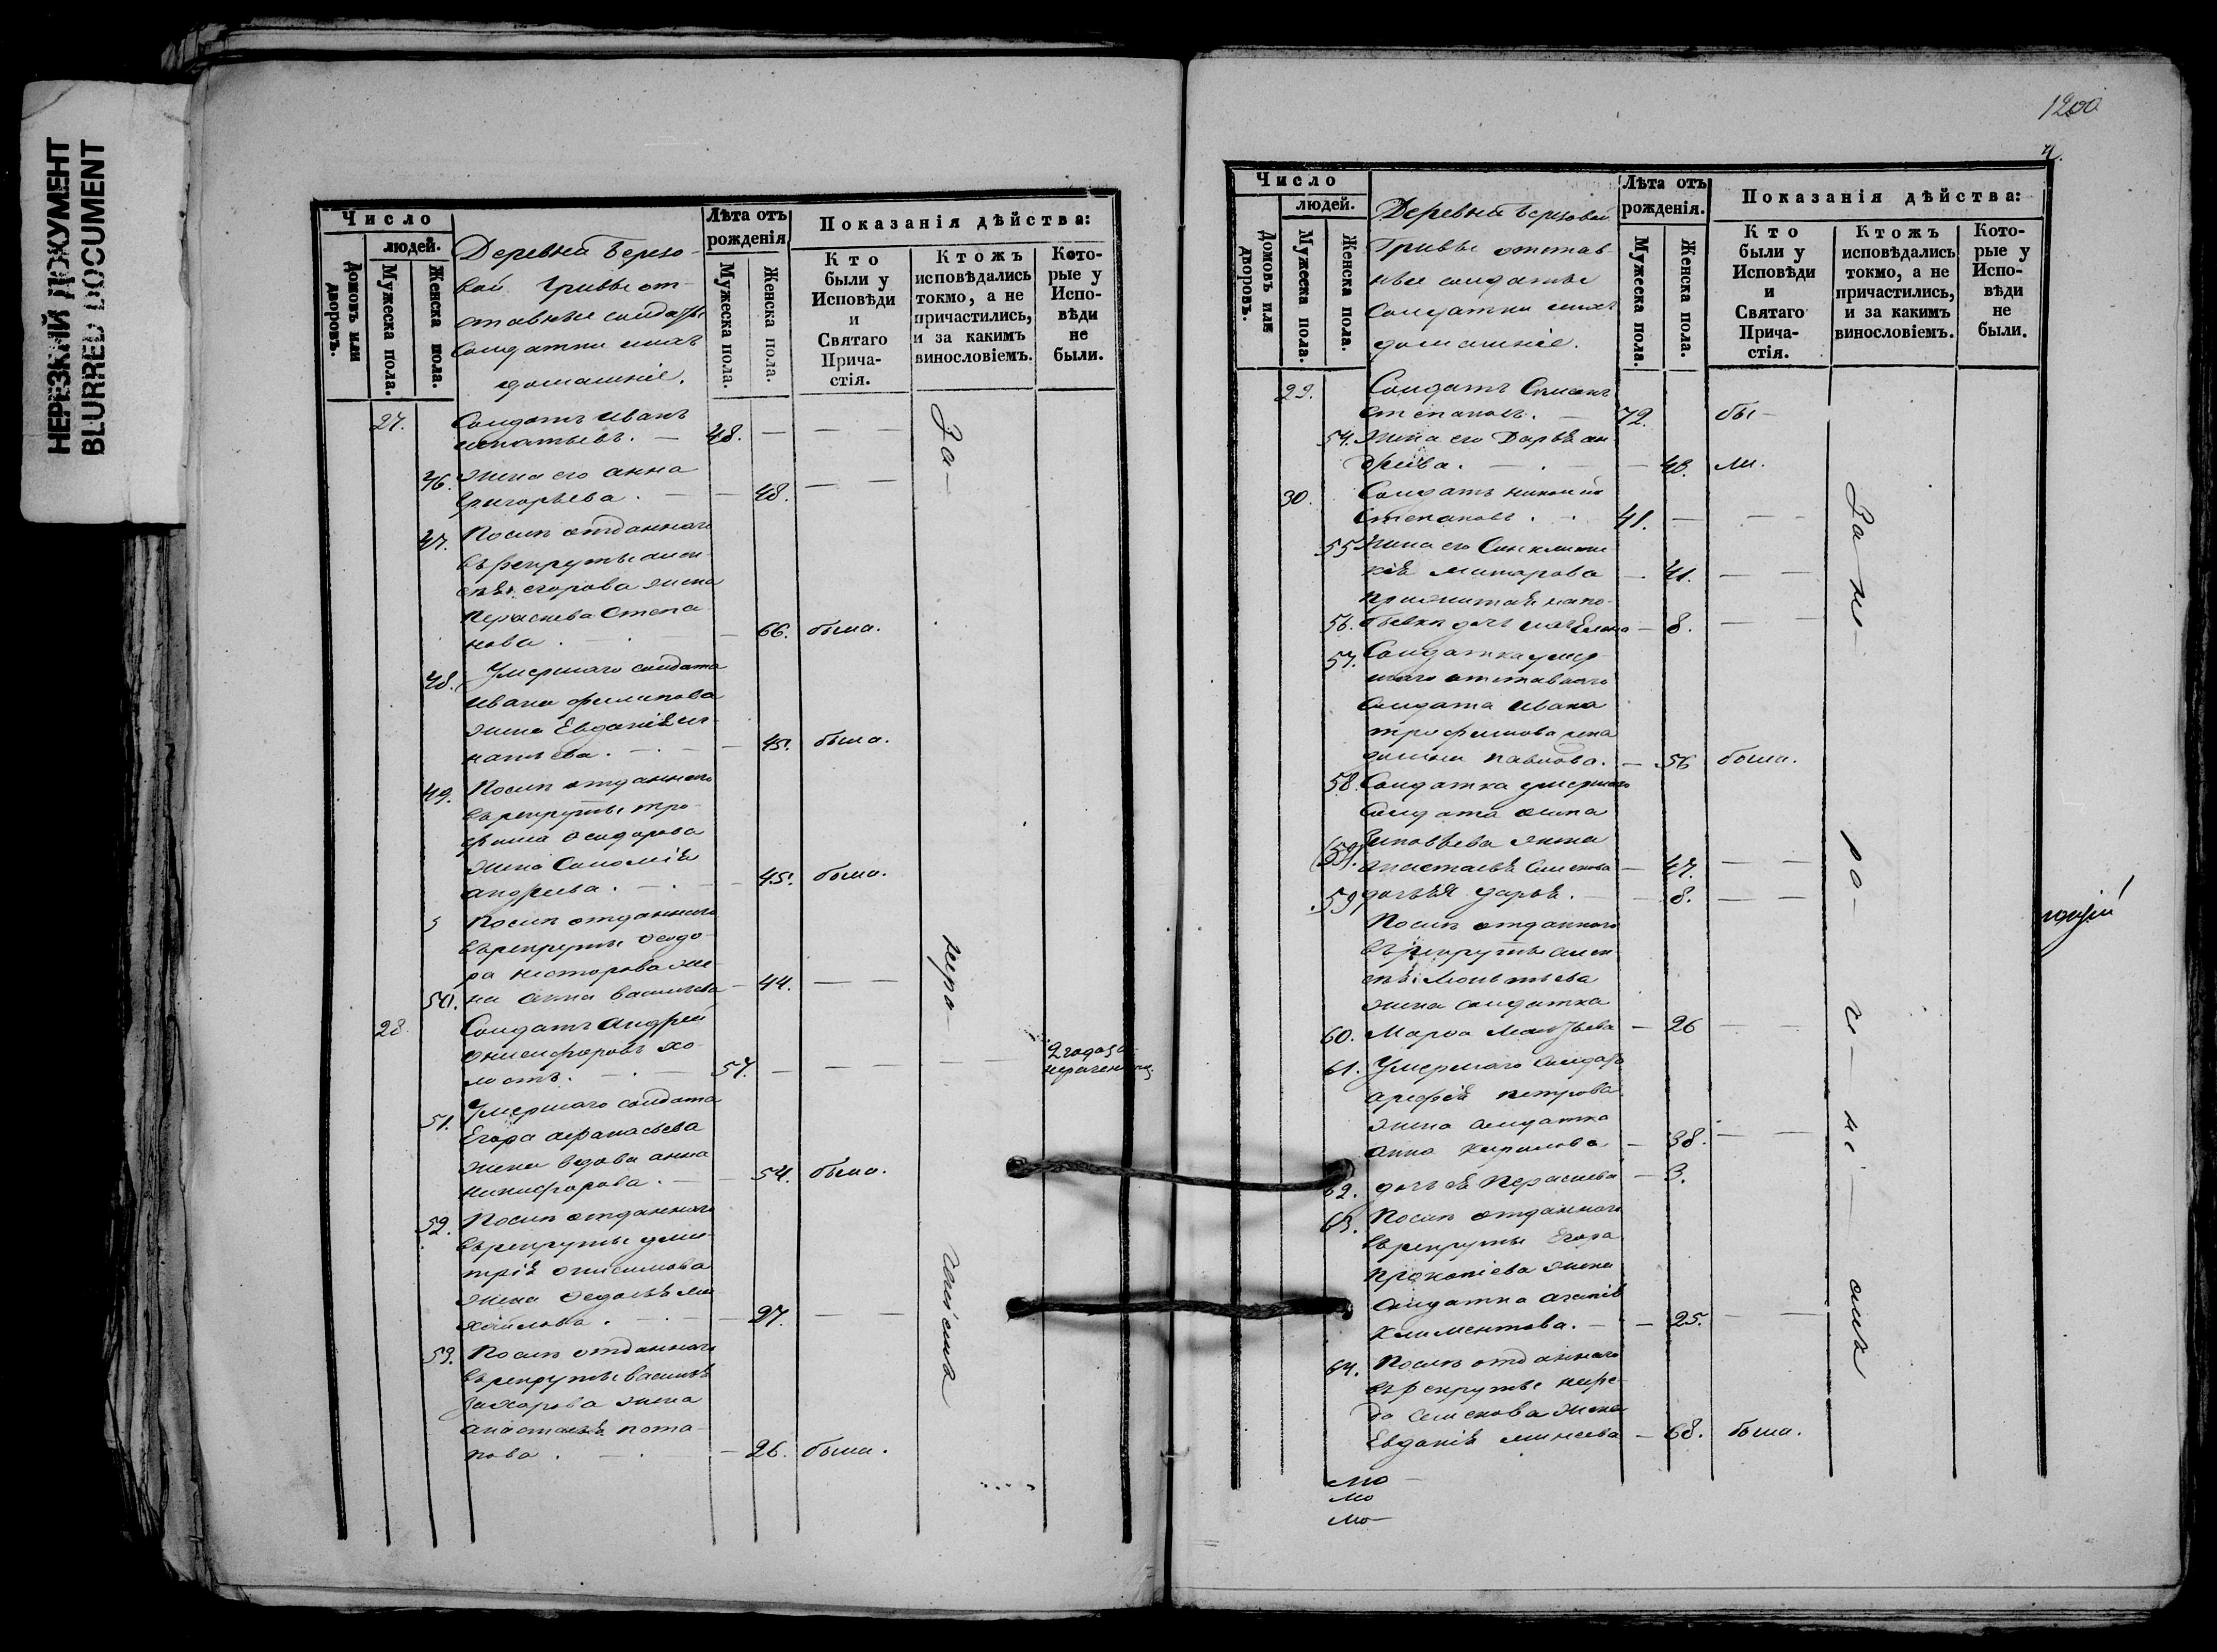 НЕРЕЗКИЙ ДОКУМЕНТ
BLURRED DOCUMENT
Число
людей.
Домовъ или дворовъ.
Мужеска пола.
Женска пола.
Деревни Березо-
вой Гривы от-
ставные солдаты
Солдатки ихъ
домашніе.
Лѣта отъ рожденія
Мужеска пола.
Женска пола.
Показанія дѣйства:
Кто были у Исповѣди и Святаго Прича-стія.
Ктожъ исповѣдались токмо, а не причастились, и за какимъ винословіемъ.
Кото-рые у Испо-вѣди не были.
27. Солдатъ Иванъ
48. — — —
46. Жена его Анна
Григорьева. — — 48. — —
47. Послѣ отданнаго
въ рекруты Алек-
сѣя Егорова жена
Параскева Степа
нова. — 66. была.
48. Умершаго солдата
Ивана Филипова
жена Евдокія Иг-
натьева. — 45. была.
49. Послѣ отданнаго
въ рекруты Тро-
фима Ѳедорова
жена Соломія
Андреева. — 45. была.
Послѣ отданнаго
въ рекруты Ѳедо-
ра Несторова же-
50. на Анна Васильева — 44. — —
28. Солдатъ Андрей
Онисифоровъ хо-
лостъ. — 57. — — — —
2 года за
51. Умершаго солдата
Егора Афанасьева
жена вдова Анна
Никифорова. — 54. была.
52. Послѣ отданнаго
въ рекруты Дми-
трія Онисимова
жена Ѳедосья Ми
хайлова. — 27. — —
53. Послѣ отданнаго
въ рекруты Василья
Захарова жена
Анастасія Пота-
пова. — 26. была.
За-
неро-
ніемъ
1200
Число
людей.
Домовъ или дворовъ.
Мужеска пола.
Женска пола.
Деревни Березовой
Гривы отстав-
ные солдаты
Солдатки ихъ
домашніе.
Лѣта отъ рожденія.
Мужеска пола.
Женска пола.
Показанія дѣйства:
Кто были у Исповѣди и Святаго Прича-стія.
Ктожъ исповѣдались токмо, а не причастились, и за какимъ винословіемъ.
Кото-рые у Испо-вѣди не были.
29. Солдатъ Симонъ
Степановъ. — 72. бы-
54. Жена его Дарья Ан
дреева. — 43. ли.
30. Солдатъ
Степановъ. 41. — — —
55 Жена его Синклити
кія Макарова — 41. — —
56. дочь ихъ Елена — 8. — —
57. Солдатка умер-
шаго отставнаго
Солдата Ивана
Трофимова жена
Павлова. — 56 была.
58. Солдатка умершаго
Солдата Осипа
жена
Анастасія Семенова — 47. — —
59 дочь ея Дарья. — 8. — —
Послѣ отданнаго
въ рекруты Алек
сѣя
жена солдатка
60. Марѳа — 26 — —
61. Умершаго солдата
Арефія Петрова
жена солдатка
Анна Кирилова — 38. — —
62. дочь ея Параскева — 3.
63. Послѣ отданнаго
въ рекруты Егора
Прокопіева жена
Солдатка Агапія
Климентова. — 25. — —
64. Послѣ отданнаго
въ рекруты
Семенова жена
Евдокія Минеева — 68. была.
За
не-
ро-
че-
ні-
емъ
мо-
мо
мо-